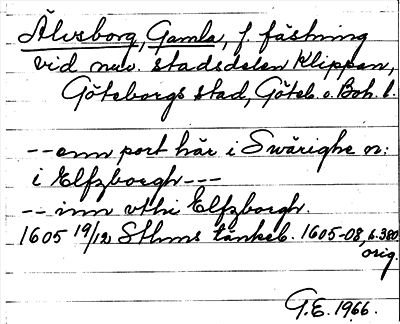 Älvsborg, Gamla, f. fästning
vid nuv. stadsdelen Klippan,
Göteborgs stad, Göteb. o. Boh. l.
--enn port här i Swärighe n:
i Elfzborgh---
--inn vthi Elfzborgh.
1605 19/12 Sthms tänkeb. 1605-08, s. 380
orig.
G.E. 1966.